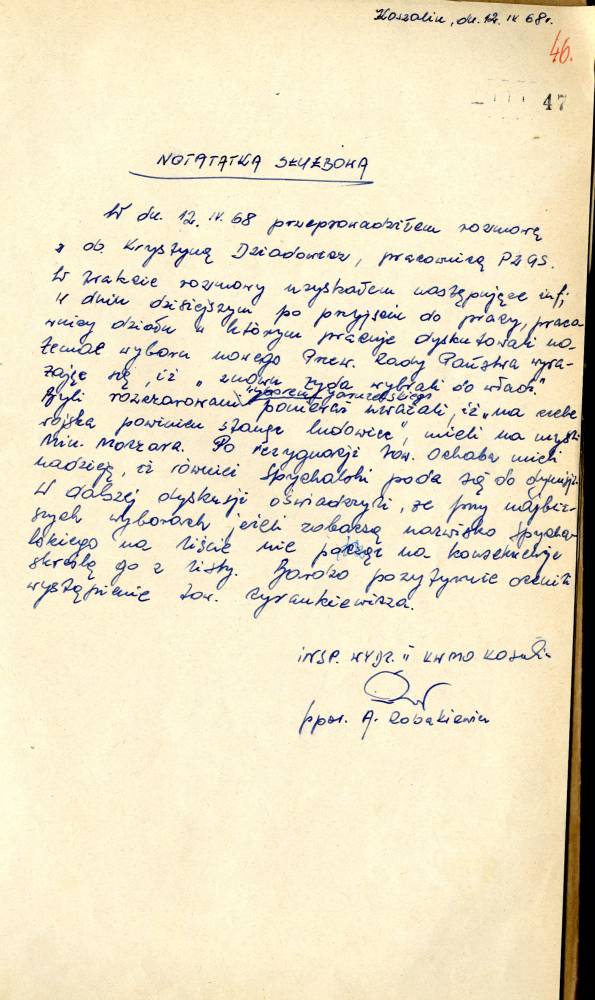 Koszalin, dn. 12. IV 68r.
46.
47
NOTATKA SŁUŻBOWA
W dn. 12. IV. 68 przeprowadziłem rozmowę
z ob. Krystyną Dziadowicz, pracownicą PZGS.
W trakcie rozmowy uzyskałem następujące inf;
W dniu dzisiejszym po przyjściu do pracy, praco
wnicy działu w którym pracuje dyskutowali na
temat wyboru nowego Przew. Rady Państwa wyra-
żając się, iż "znowu żyda wybrali do władz."
Byli rozczarowani wyborem
ponieważ uważali, iż "na czele
wojska powinien stanąć ludowiec", mieli na myśli
Min. Moczara. Po rezygnacji tow. Ochaba mieli
nadzieję, iż również Spychalski poda się do dymisji.
W dalszej dyskusji oświadczyli, że przy najbliż-
szych wyborach jeżeli zobaczą nazwisko Spycha-
lskiego na liście nie patrząc na konsekwencje
skreślą go z listy. Bardzo pozytywnie ocenili
wystąpienie tow. Cyrankiewicza.
INSP. WYDZ. II KWMO
ppor. A. Robakiewicz